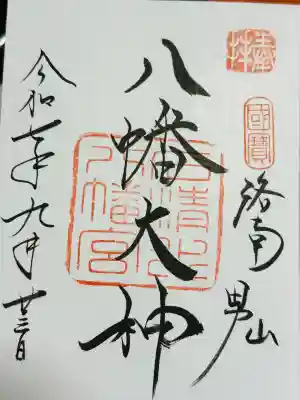 奉拝
國寳
洛南 男山
八幡大神
石清水八幡宮
令和七年九月廿三日